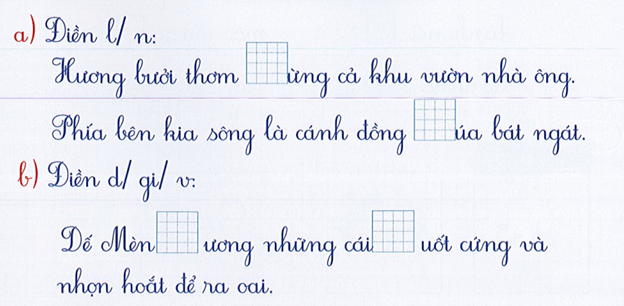 a) Điền l/ n:
Hương bưởi thơm ừng cả khu vườn nhà ông.
Phía bên kia sông là cánh đồng úa bát ngát.
b) Điền d/ gi/ v:
Dế Mèn ương những cái uốt cứng và
nhọn hoắt để ra oai.